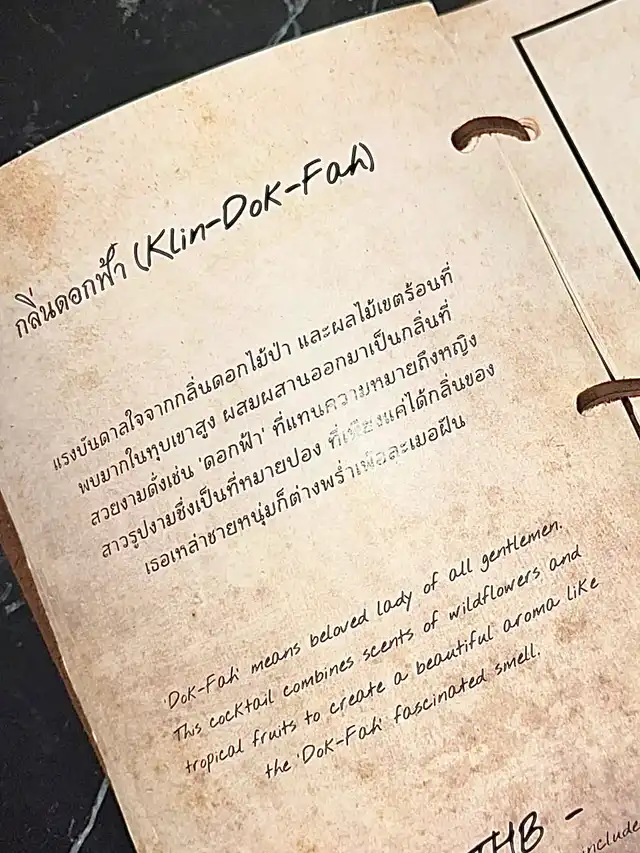 กลิ่นดอกฟ้า (Klin-Dok-Fah)
แรงบันดาลใจจากกลิ่นดอกไม้ป่า และผลไม้เขตร้อนที่
พบมากในหุบเขาสูง ผสมผสานออกมาเป็นกลิ่นที่
สวยงามดั่งเช่น 'ดอกฟ้า' ที่แทนความหมายถึงหญิง
สาวรูปงามซึ่งเป็นที่หมายปอง ที่เพียงแค่ได้กลิ่นของ
เธอเหล่าชายหนุ่มก็ต่างพร่ำเพ้อละเมอฝัน
'Dok-Fah' means beloved lady of all gentlemen.
This cocktail combines scents of wildflowers and
tropical fruits to create a beautiful aroma like
the 'Dok-Fah' fascinated smell.
THB -
include